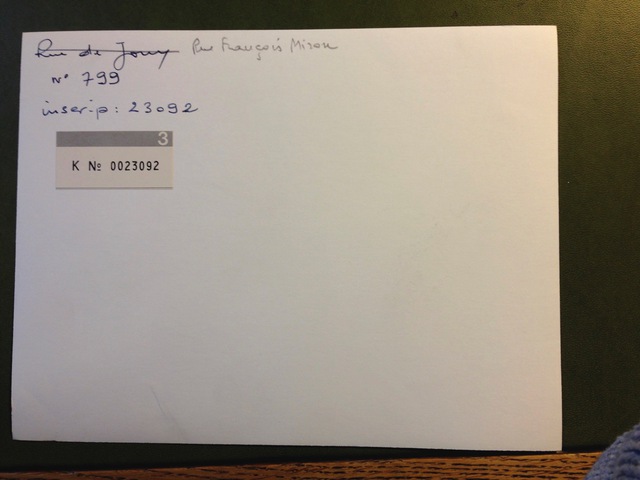 Rue de Jouy Rue François Miron
N° 799
inscrip: 23092
3
K № 0023092